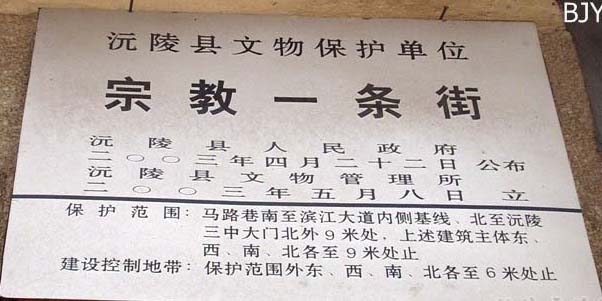 BJY
沅陵县文物保护单位
宗教一条街
沅陵县人民政府
二〇〇三年四月二十二日公布
沅陵县文物管理所
二〇〇三年五月八日立
保护范围：马路巷南至滨江大道内侧基线、北至沅陵
三中大门北外9米处，上述建筑主体东、
西、南、北各至9米处止
建设控制地带：保护范围外东、西、南、北各至6米处止